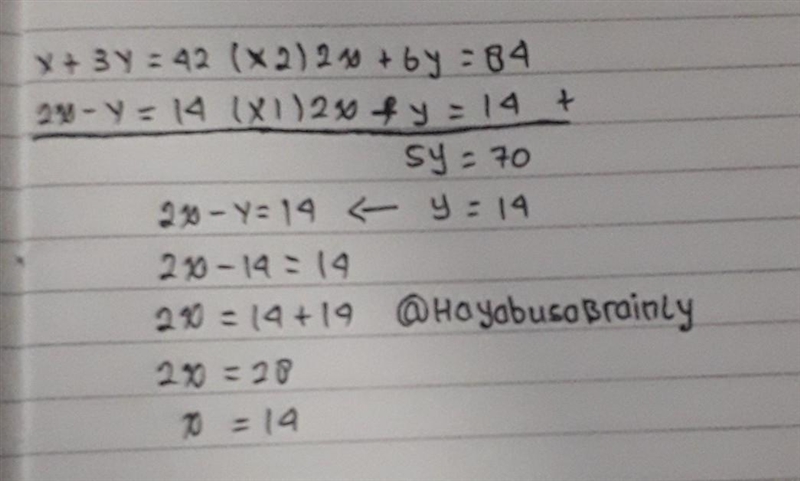 x + 3y = 42 (x2) 2x + 6y = 84
2x - y = 14 (x1) 2x + y = 14 +
5y = 70
2x - y = 14 ← y = 14
2x - 14 = 14
2x = 14 + 14 @HayabusaBrainly
2x = 28
x = 14